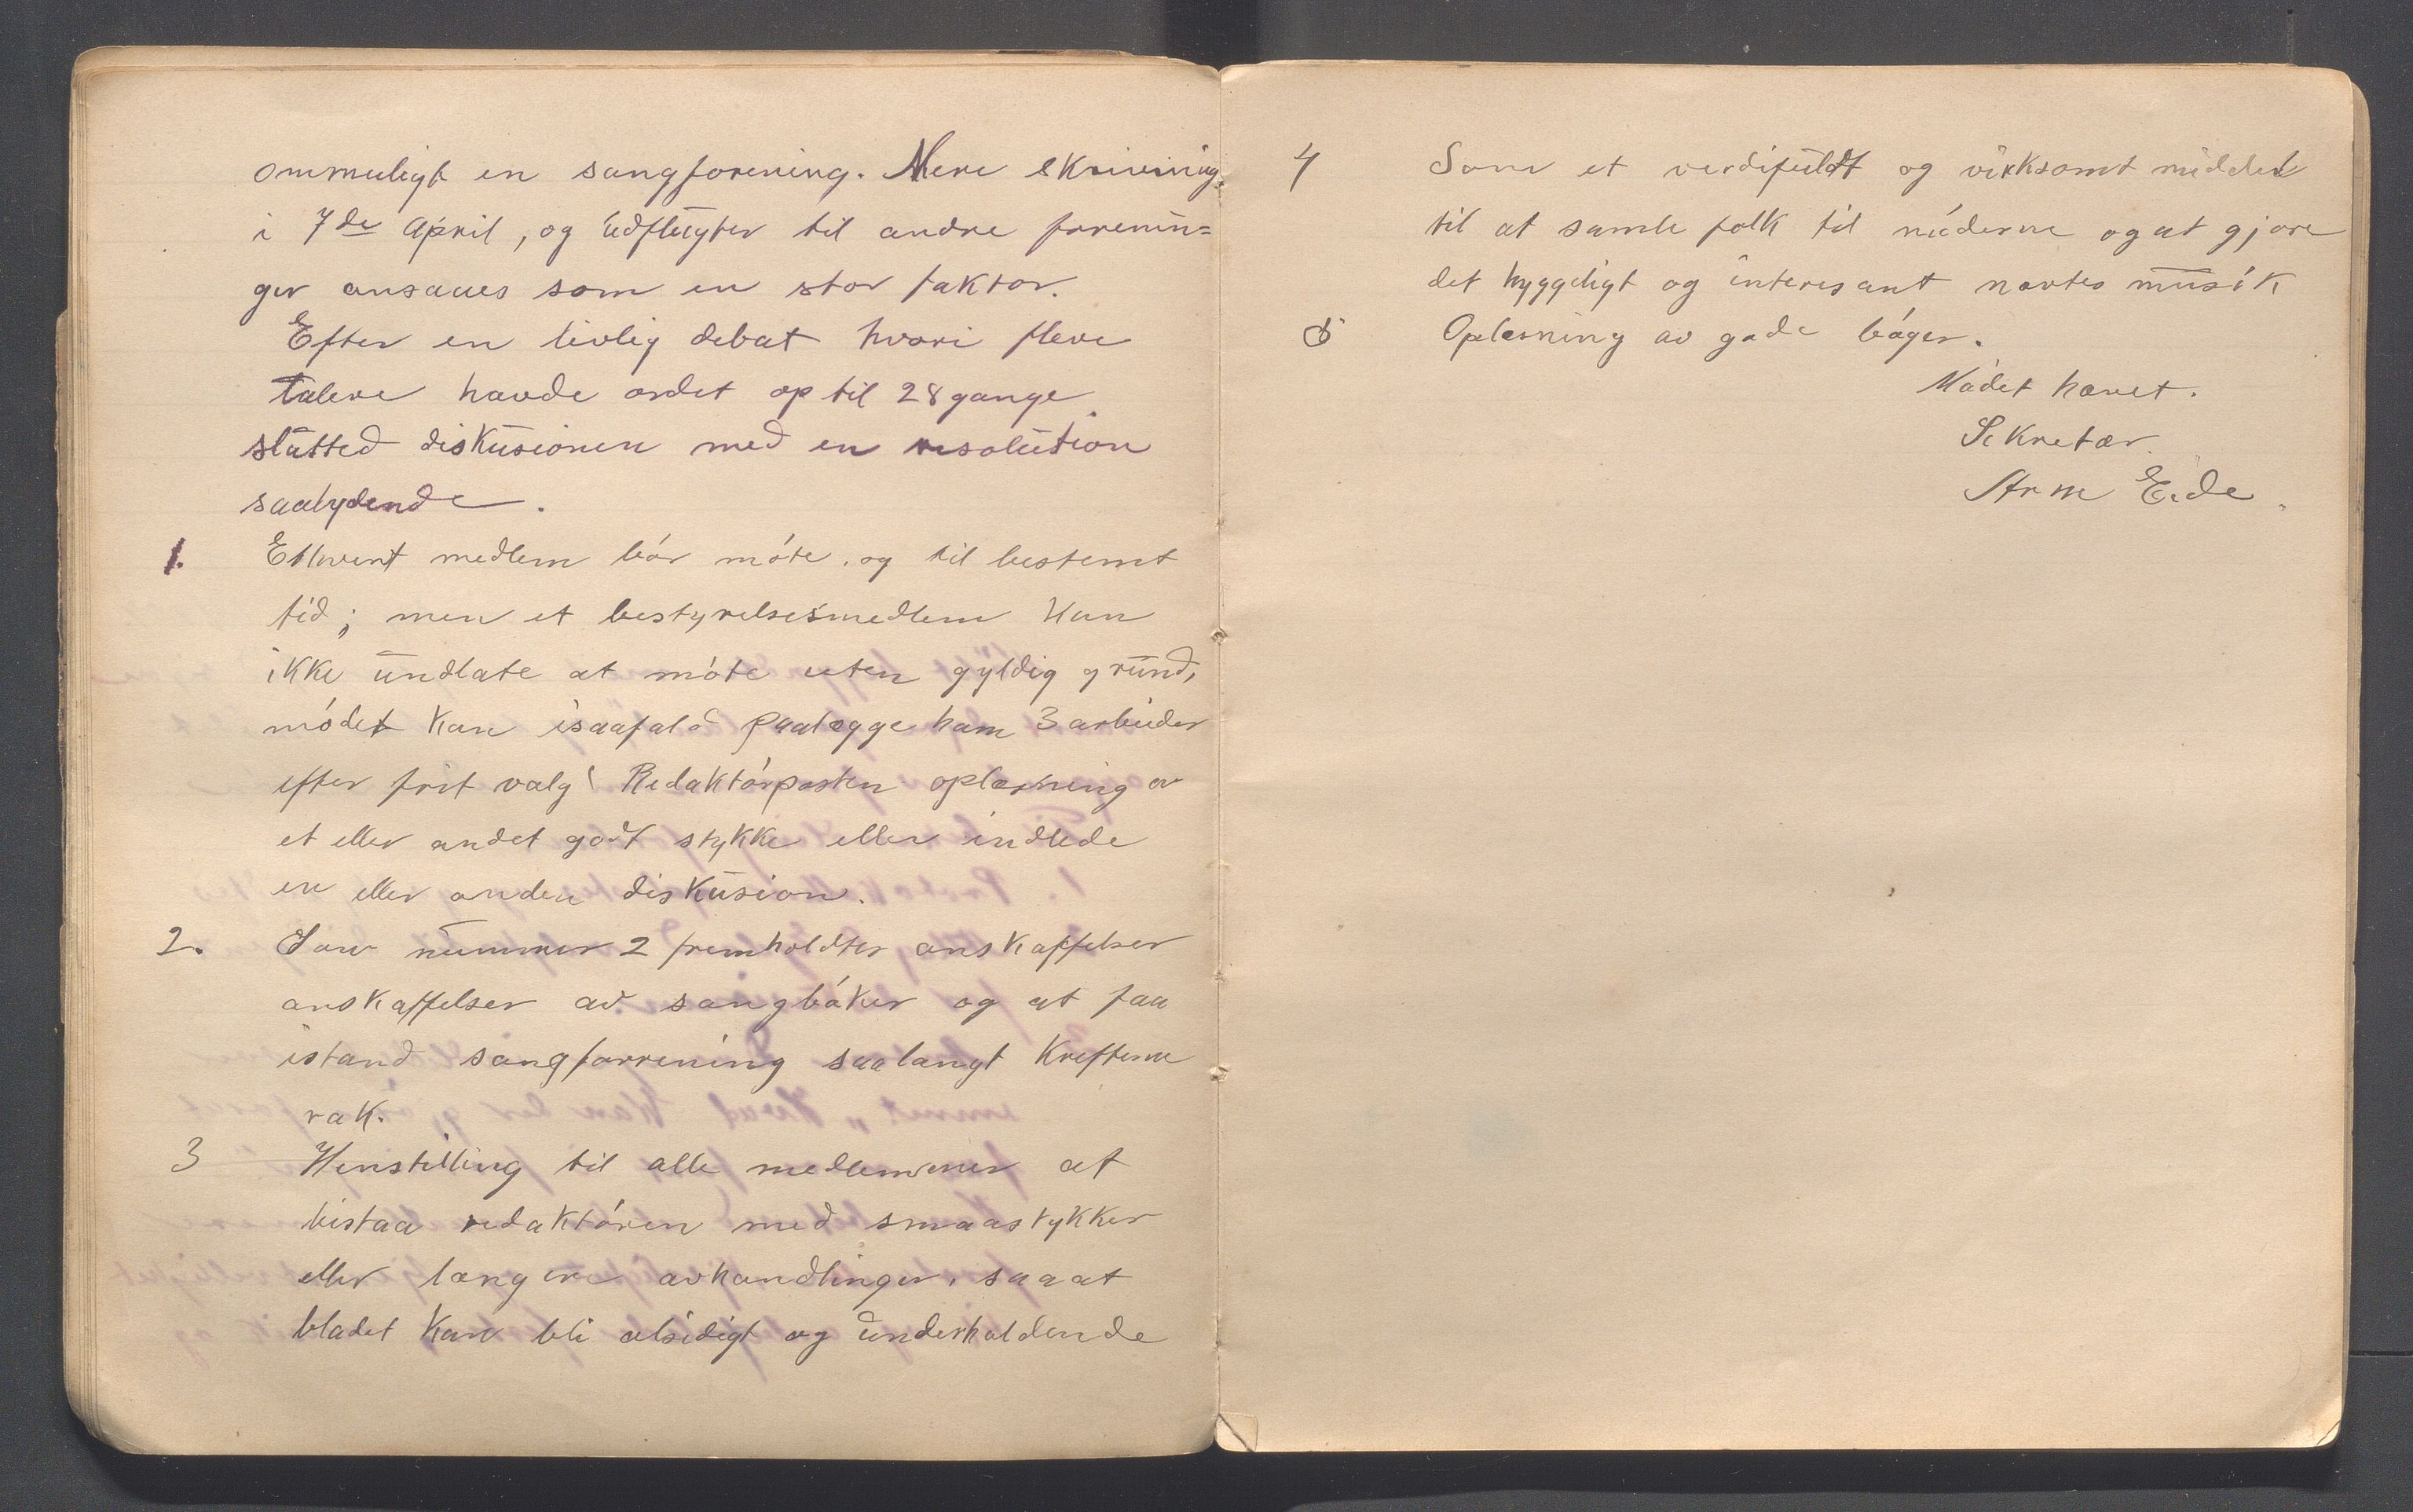 ommuligt en sangforening. Mere skrivning
i 7de April, og údflugter til andre forenin=
ger ansaaes som en stor faktor.
Efter en livlig debat hvori flere
talere havde ordet op til 28 gange
slutted diskusionen med en resolution
saalydende.
1. Ethvert medlem bór móte. og til bestemt
tid; men et bestyrelsesmedlem kan
ikke undlate at móte uten gyldig grund,
módet kan isaafald paalægge ham 3 arbeider
efter frit valg! Redaktórposten oplæsning av
et eller andet godt stykke eller indlede
en eller anden diskusion.
2. Som nummer 2 fremholdtes anskaffelser
anskaffelser av sangbóker og at faa
istand sangforrening saalangt Kræfterne
rak.
3 Henstilling til alle medlemmer at
bistaa redaktóren med smaastykker
eller længere avhandlinger, saaat
bladet kan bli alsidigt og underholdende
4 Som et verdifuldt og virksomt middel
til at samle folk til móderne og at gjøre
det hyggeligt og interesant nævntes musik
5 Oplæsning av gode bóger.
Módet hævet.
Sekretær.
Arm Eide.